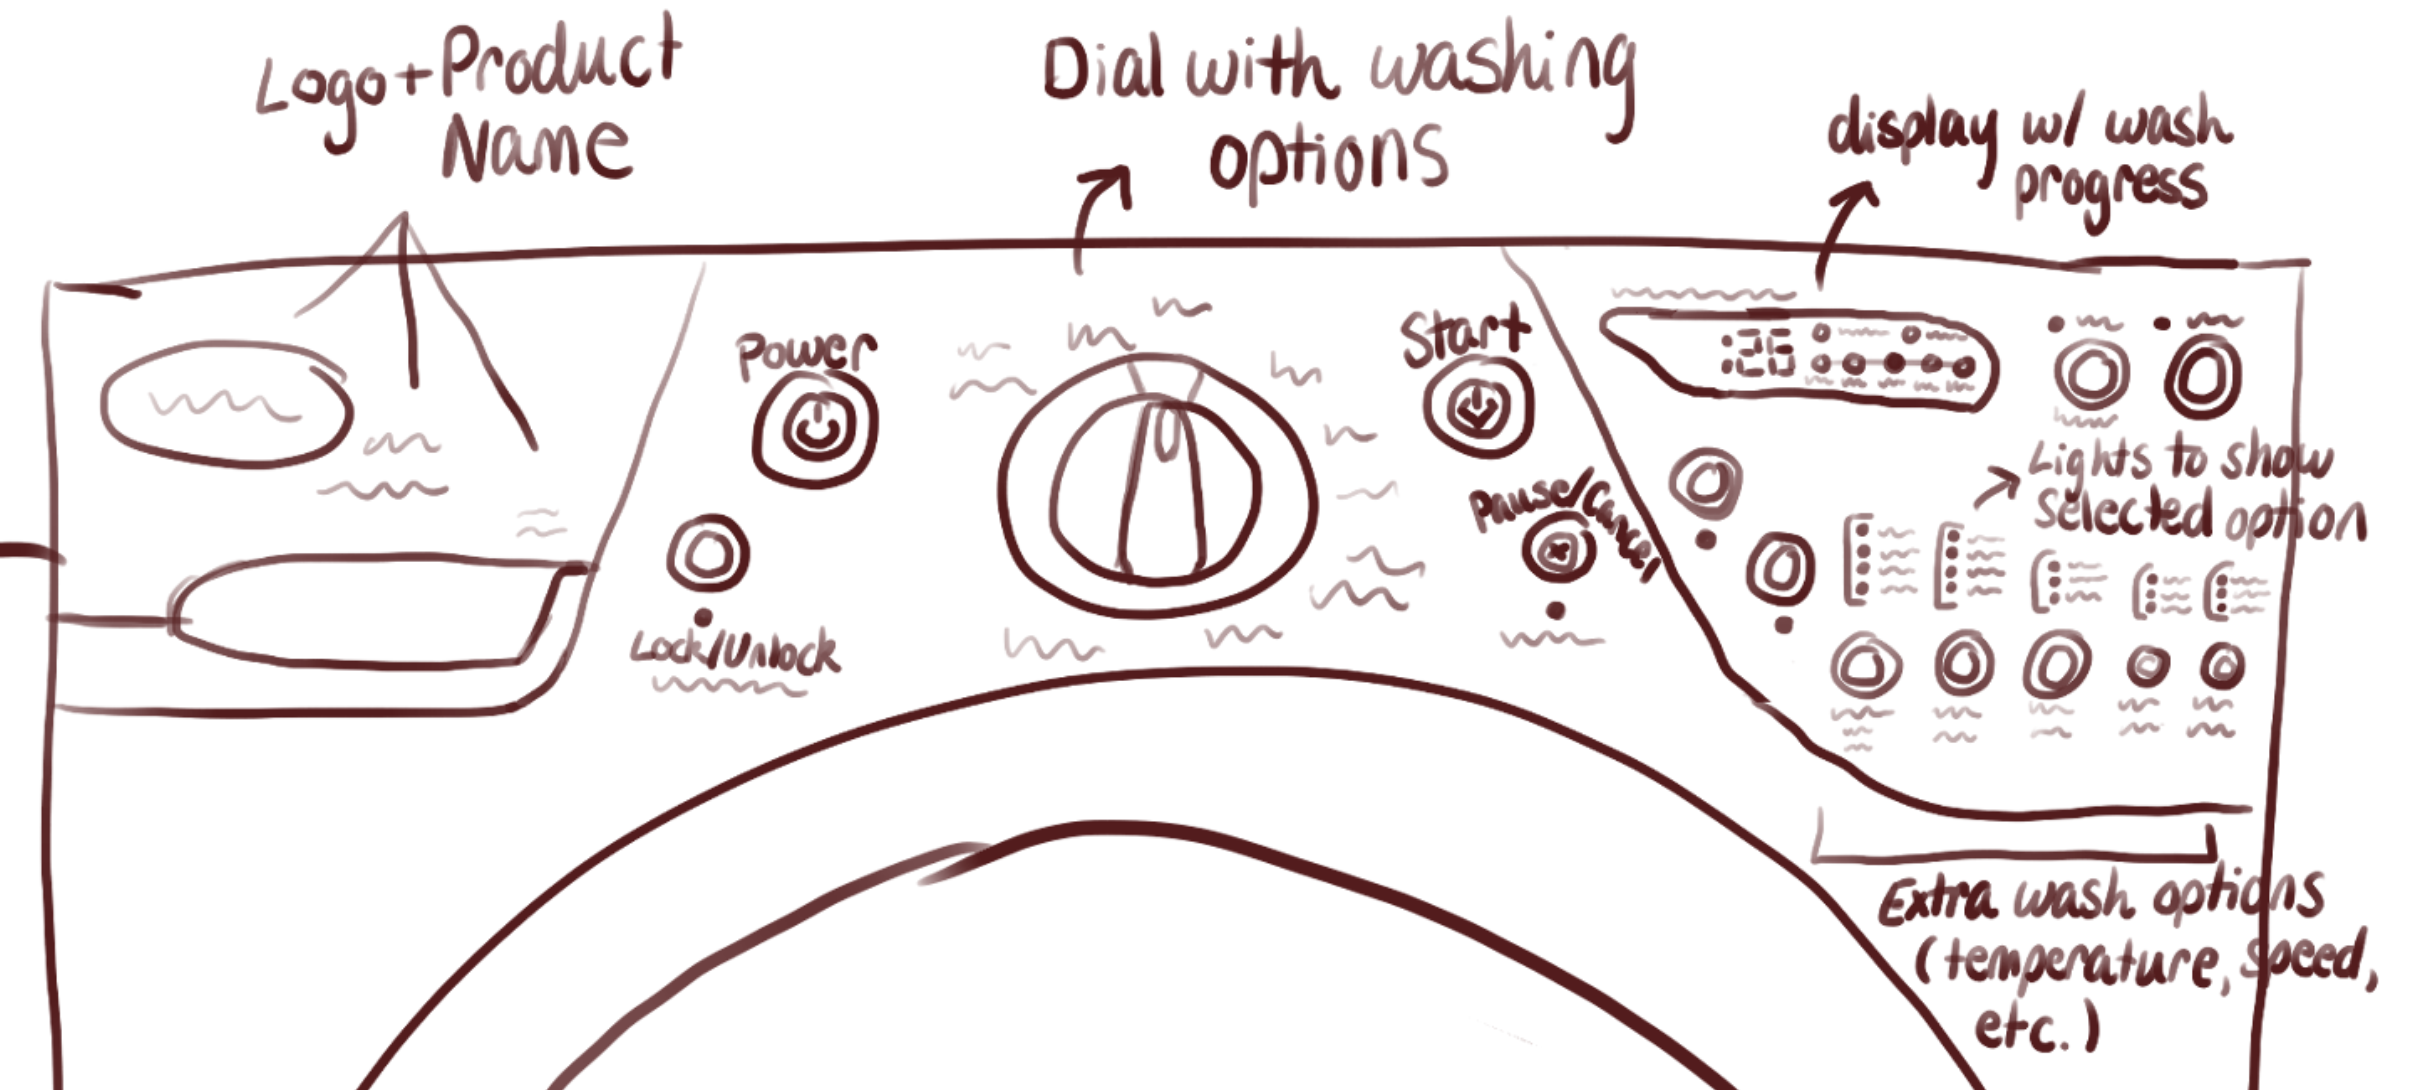 Logo + Product
Name
Dial with washing
options
display w/ wash
progress
Power
Start
:26
Pause/Cancel
Lights to show
selected option
Lock/Unlock
Extra wash options
(temperature, speed,
etc.)